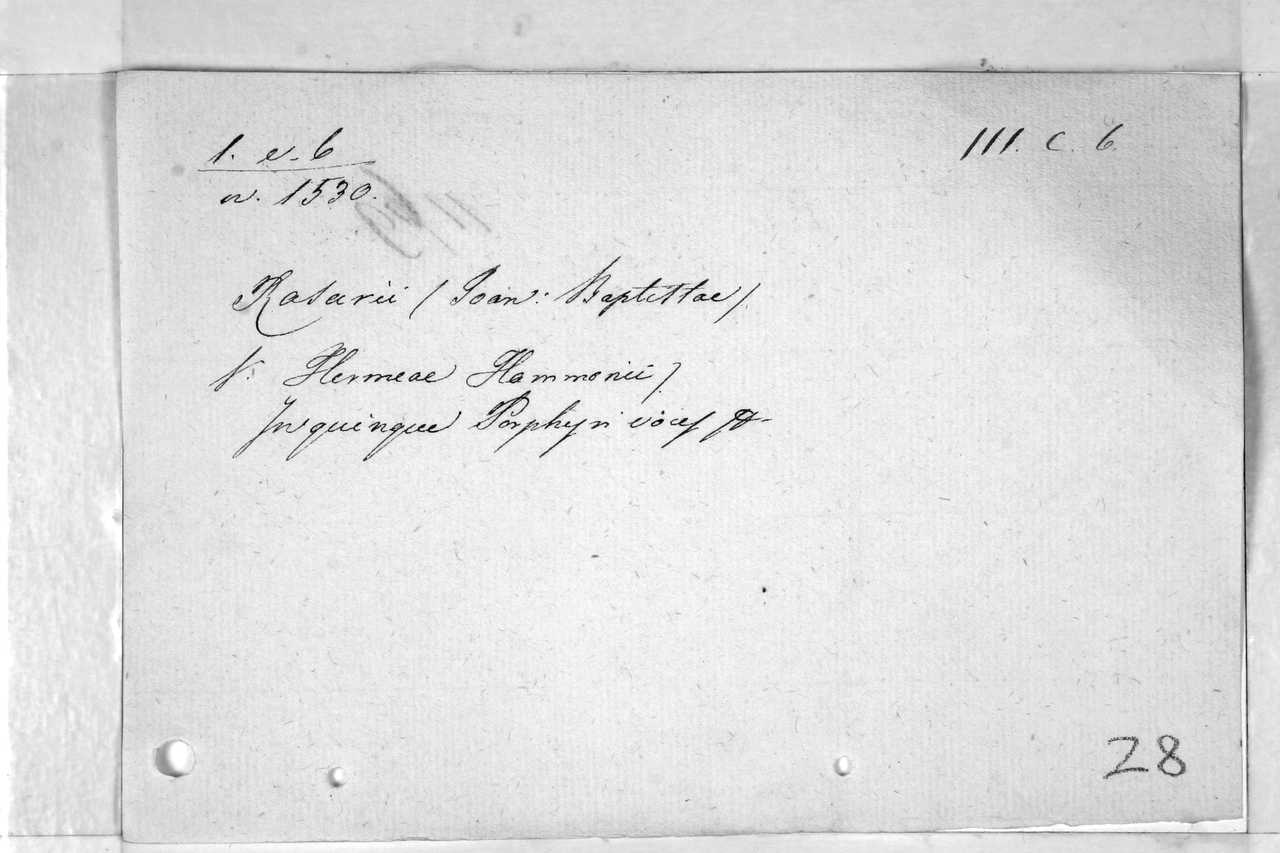 1. e. 6
III. C. 6.
n. 1530.
Rasarii (Joan: Baptistae)
V. Hermeae Hammonii)
In quinque Porphyri voces
28